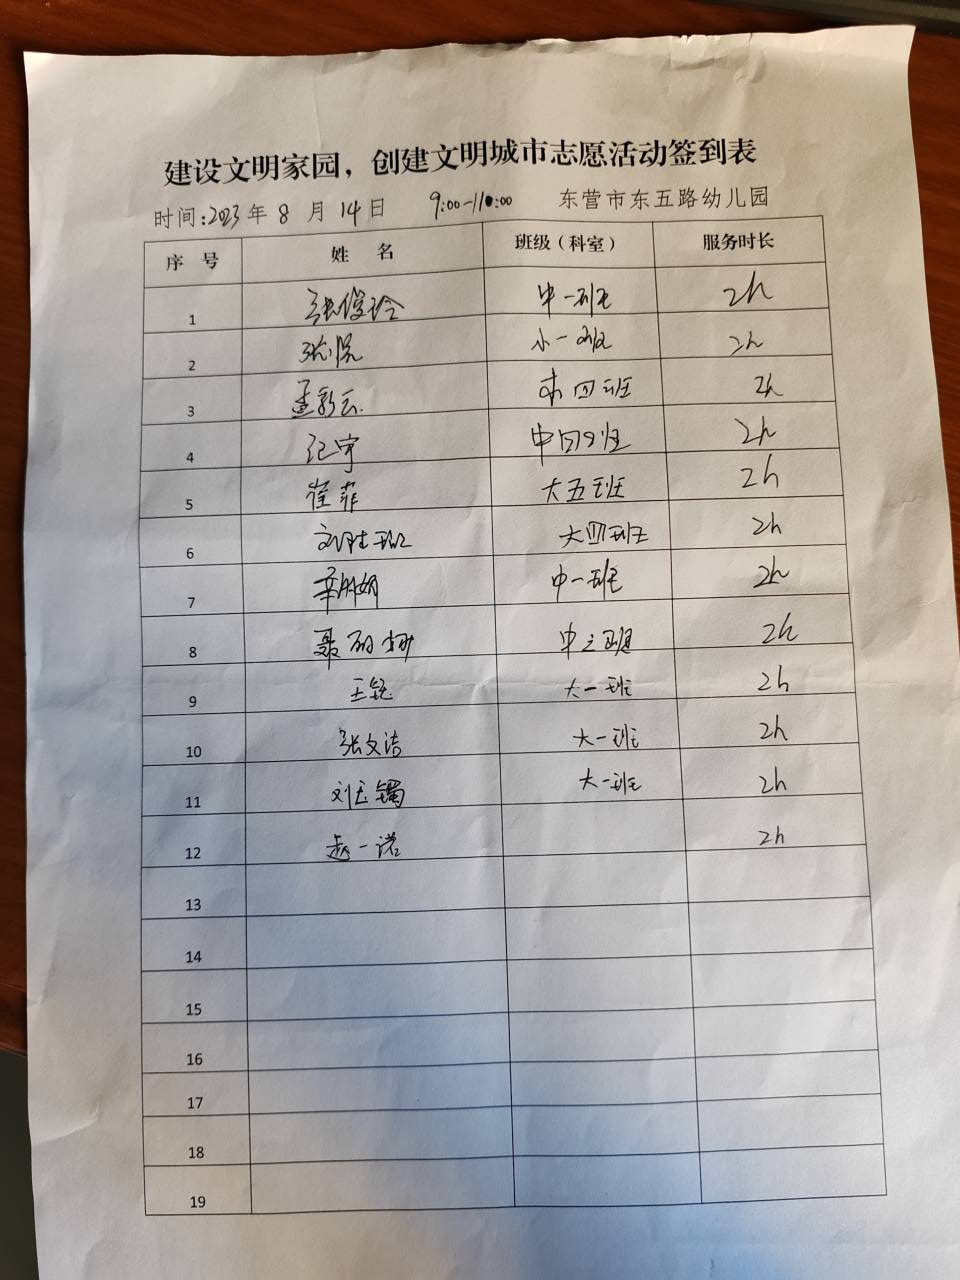 建设文明家园，创建文明城市志愿活动签到表
时间:2023年 8 月 14日 9:00-11:00 东营市东五路幼儿园
序 号 姓 名 班级（科室） 服务时长
1 张俊玲 中一班 2h
2 小一班 2h
3 孟彩云 四班 2h
4 纪宇 中四班 2h
5 崔菲 大五班 2h
6 大四班 2h
7 中一班 2h
8 聂 中 班 2h
9 王 大一班 2h
10 张文洁 大一班 2h
11 刘玉镯 大一班 2h
12 赵一诺 2h
13
14
15
16
17
18
19